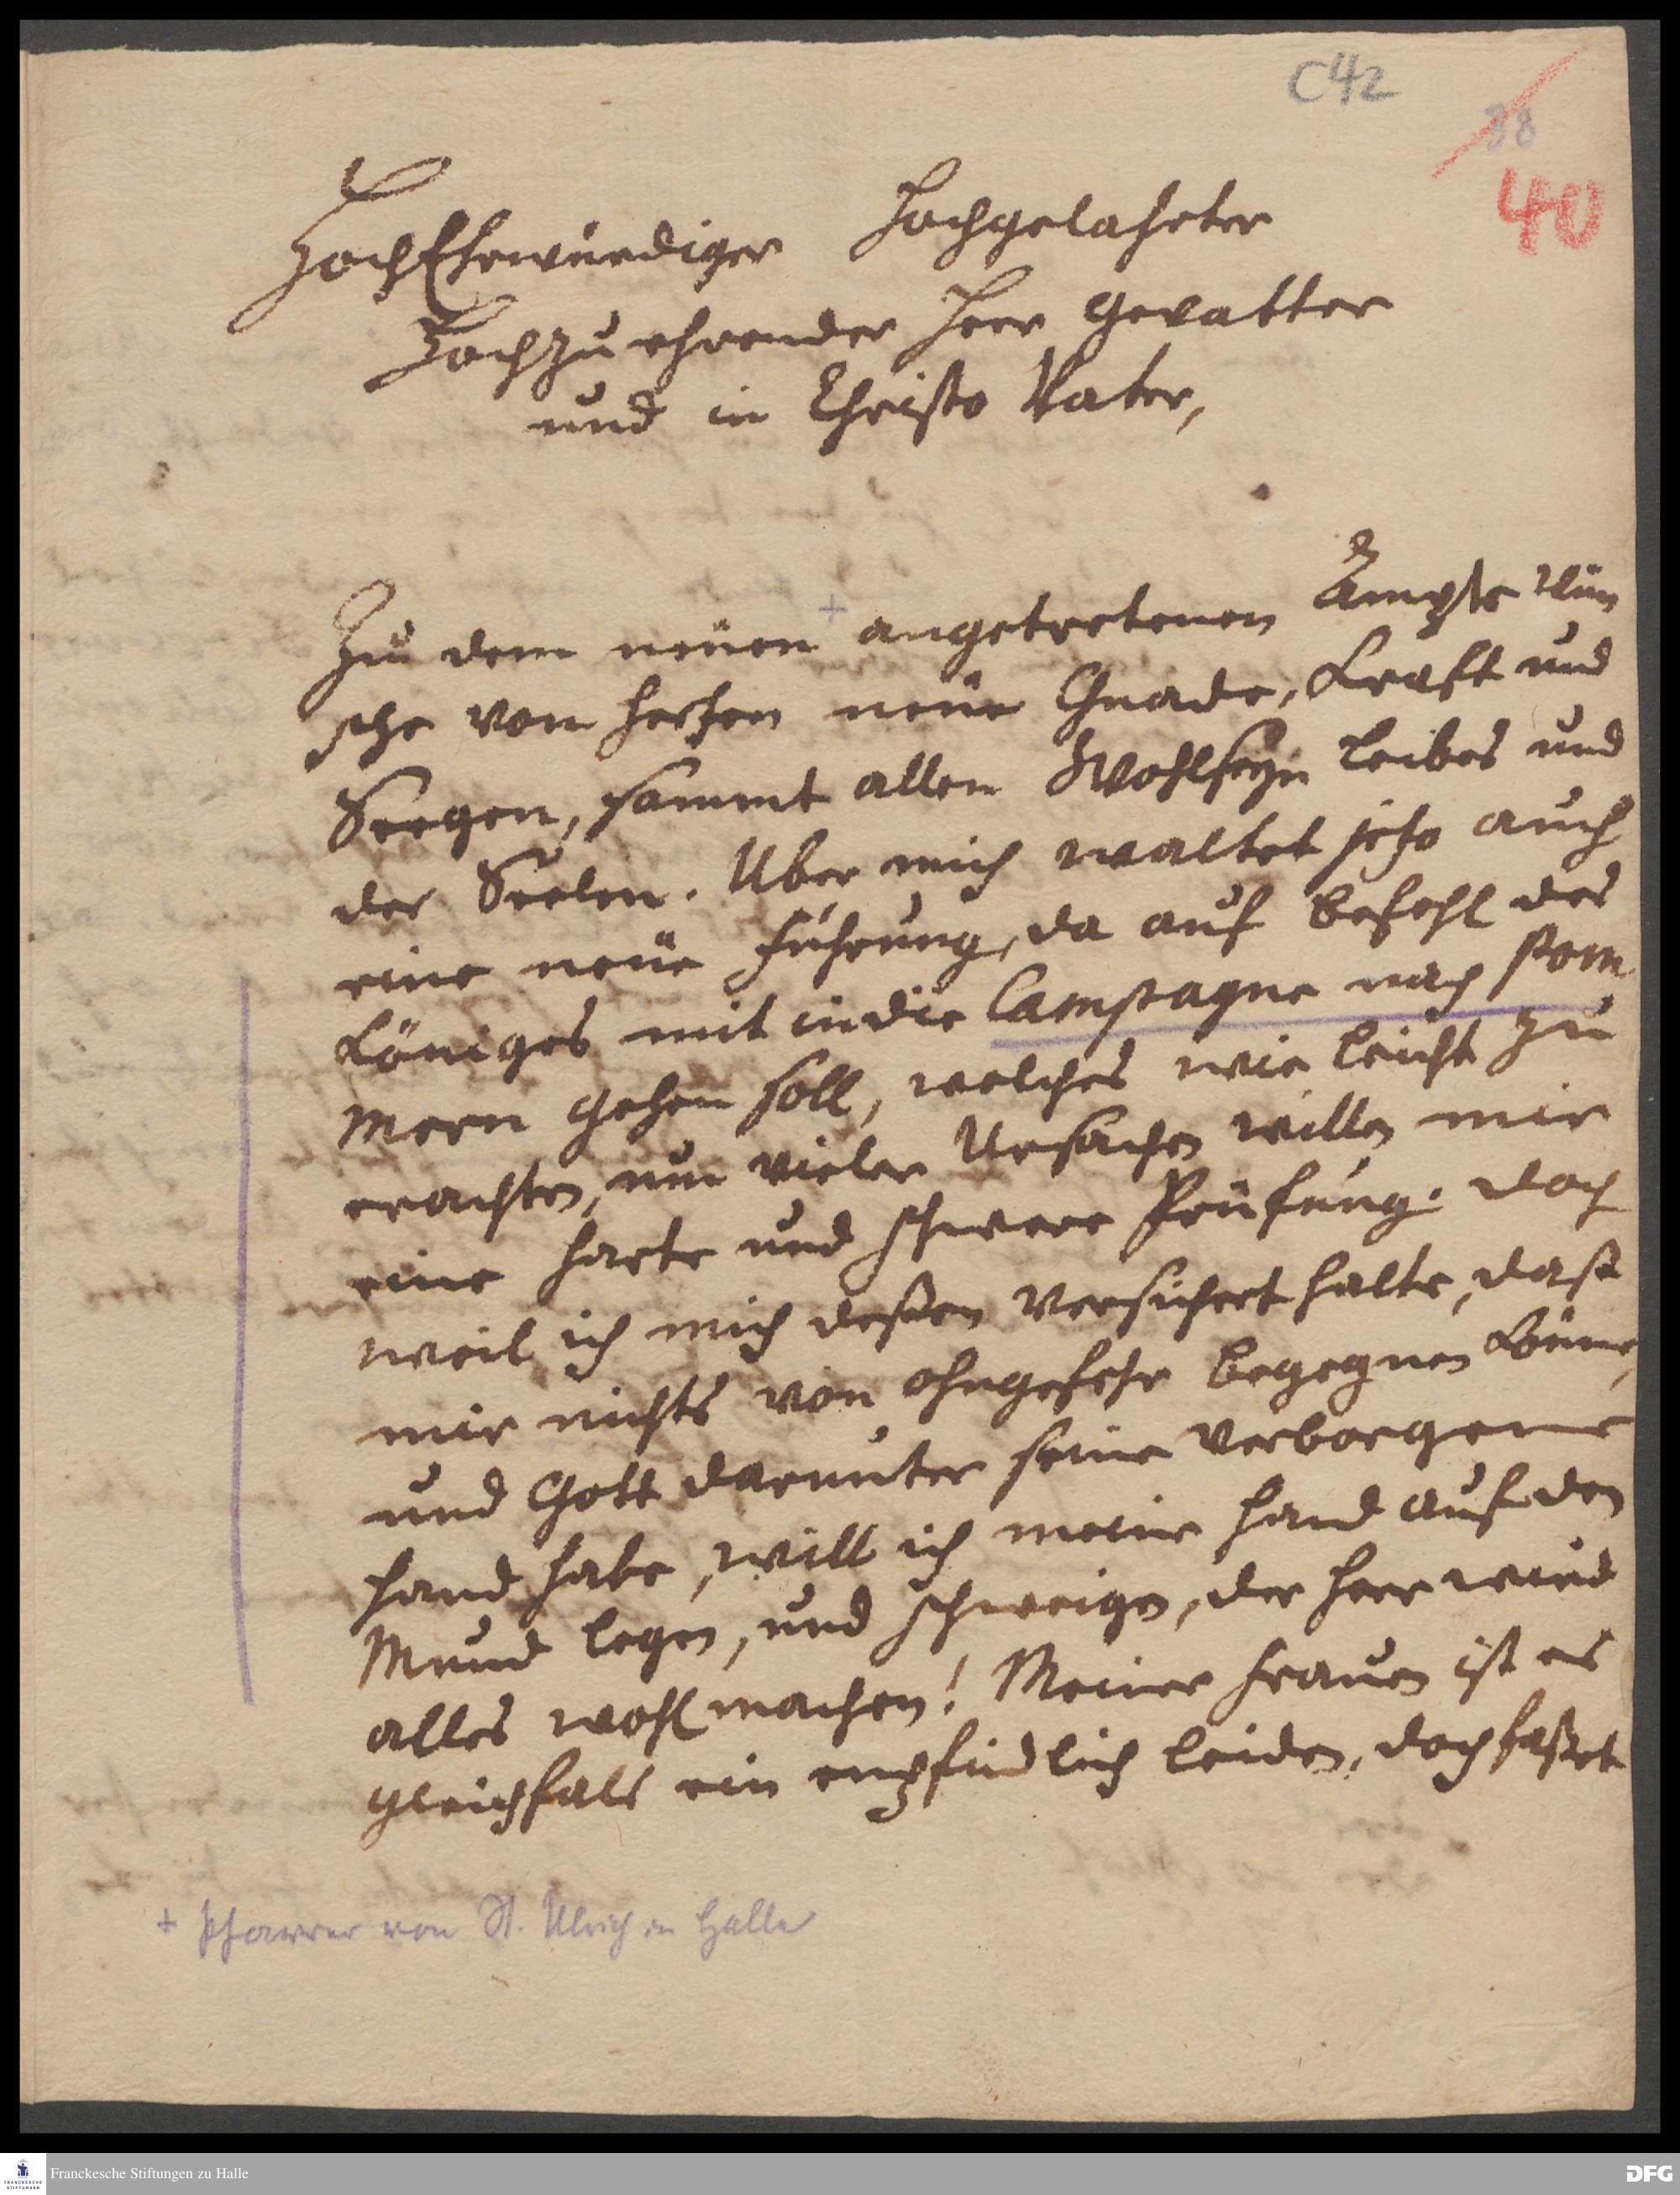 C42
38
40
HochEhrwürdiger Hochgelahrter
Hochzuehrender Herr Gevatter
und in Christo Vater,
Zu dem neüen + angetretenen Ampte wün
sche von Hertzen neüe Gnade, Krafft und
Seegen, sammt allem Wohlseyn Leibes und
der Seelen. Uber mich waltet jetzo auch
eine neüe Führung, da auf Befehl des
Königes mit in die Campagne nach Pom
mern gehen soll, welches wie leicht zu
erachten, um vieler Ursachen willen mir
eine harte und schwere Prüfung. Doch
weil ich mich deßen versichert halte, daß
mir nichts von ohngefehr begegnen könne,
und Gott darunter seine verborgene
Hand habe, will ich meine Hand auf den
Mund legen, und schweigen, der Herr wird
alles wohl machen! Meiner Frauen ist es
gleichfals ein empfindlich Leiden, doch faßet
+ Pfarrer von St. Ulrich in Halle
Franckesche Stiftungen zu Halle
FRANCKESCHE STIFTUNGEN
DFG